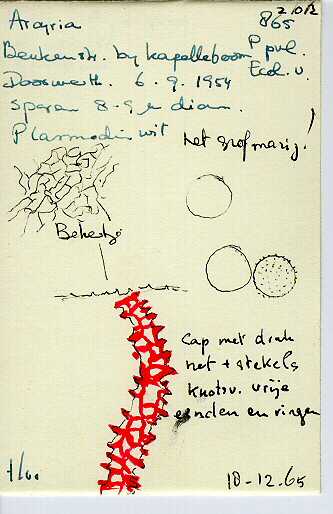 Arcyria
865
Beukenstr. by Kapelleboom
P pul.
Doorwerth. 6.9.1954
Ecol. v.
Sporen 8-9 µ diam.
Plasmodium wit
net grofmazig!
Bekertje
Cap met draden
net + stekels
knotsv. vrije
einden en ringen
10-12.65